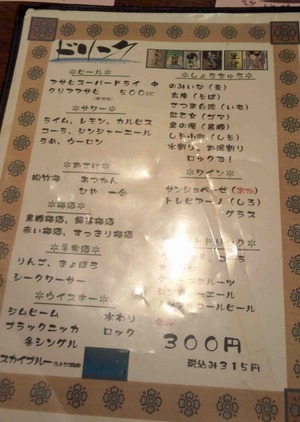 ドリンク
※ビール※
アサヒスーパードライ 中
クリアアサヒ 500cc
※サワー※
ライム、レモン、カルピス
コーラ、ジンジャーエール
うめ、ウーロン
※おさけ※
松竹梅 あつかん
ひや 一合
※梅酒※
黒糖梅酒、
赤い梅酒、すっきり梅酒
※果実酒※
りんご、きょほう
シークワーサー
※ウイスキー※
ジムビーム 水わり
ブラックニッカ ロック
各シングル
スカイブルー
※しょうちゅう※
のみいな(麦)
玄庵(そば)
さつま白波(いも)
紅乙女(ゴマ)
里の曙(黒糖)
しそ小町(しそ)
水割り、お湯割り
ロックも!
※ワイン※
サンジョベーゼ(あか)
トレビアーノ(しろ)
グラス
ドリンク※
300円
税込み315円